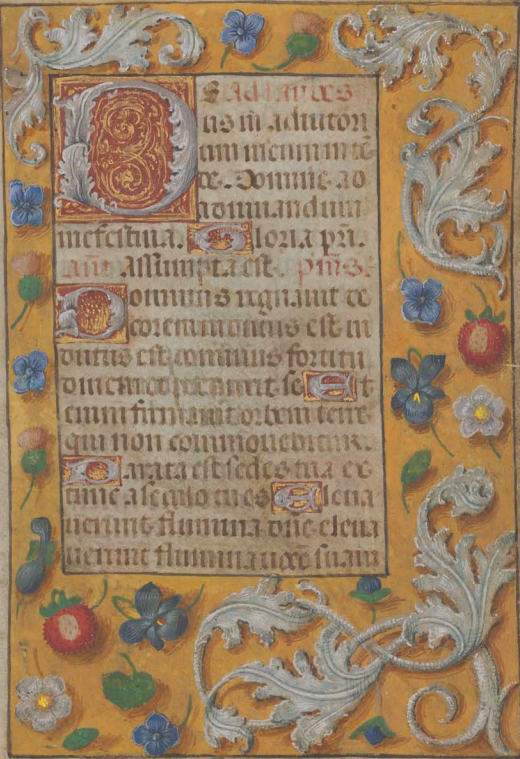 DE Ad laudes
us in adiutori
um meum intē
de. Domine ad
adiuuandum
me festina. Gloria pri.
añt Assumpta est. ps̃us.
Dominus regnauit de
corem indutus est in
dutus est dominus fortitu
dinem et precinxit se Et
enim firmauit orbem terre
qui non commouebitur.
Parata est sedes tua ex
tunc a seculo tu es Eleua
uerunt flumina dñe eleua
uerunt flumina uocē suam